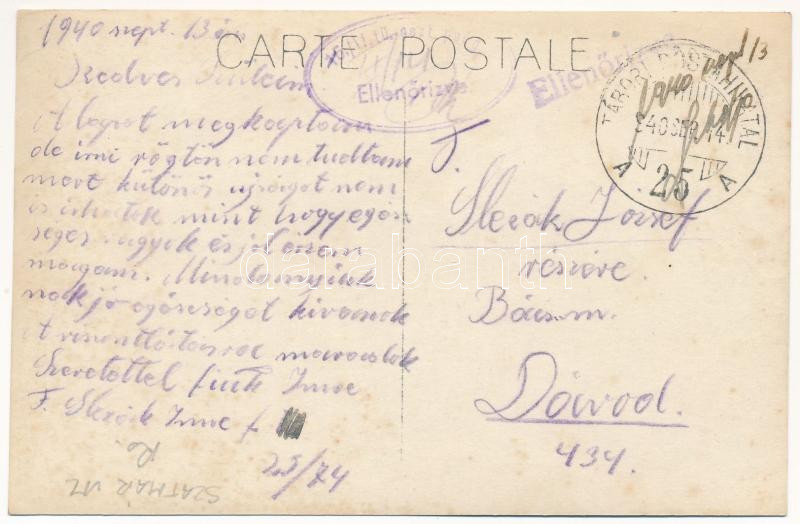 CARTE POSTALE
Ellenőrizve
Ellenőrizve
TÁBORI POSTAHIVATAL
940 SEP 14
A 25 A
1940 szept. 13 án
Kedves Szüleim
A lapot megkaptam
de irni rögtön nem tudtam
mert különös ujságot nem
is irhatok mint hogy egés
séges vagyok és jól érzem
magam. Mindannyiuk
nak jó egésséget kivánok
A viszontlátásra maradok
Szeretettel fiuk Imre
F. Slezák Imre
25/74
SZATMÁR VIZ
T.
Slezák József
részére.
Bács m.
Dávod.
434.
darabanth